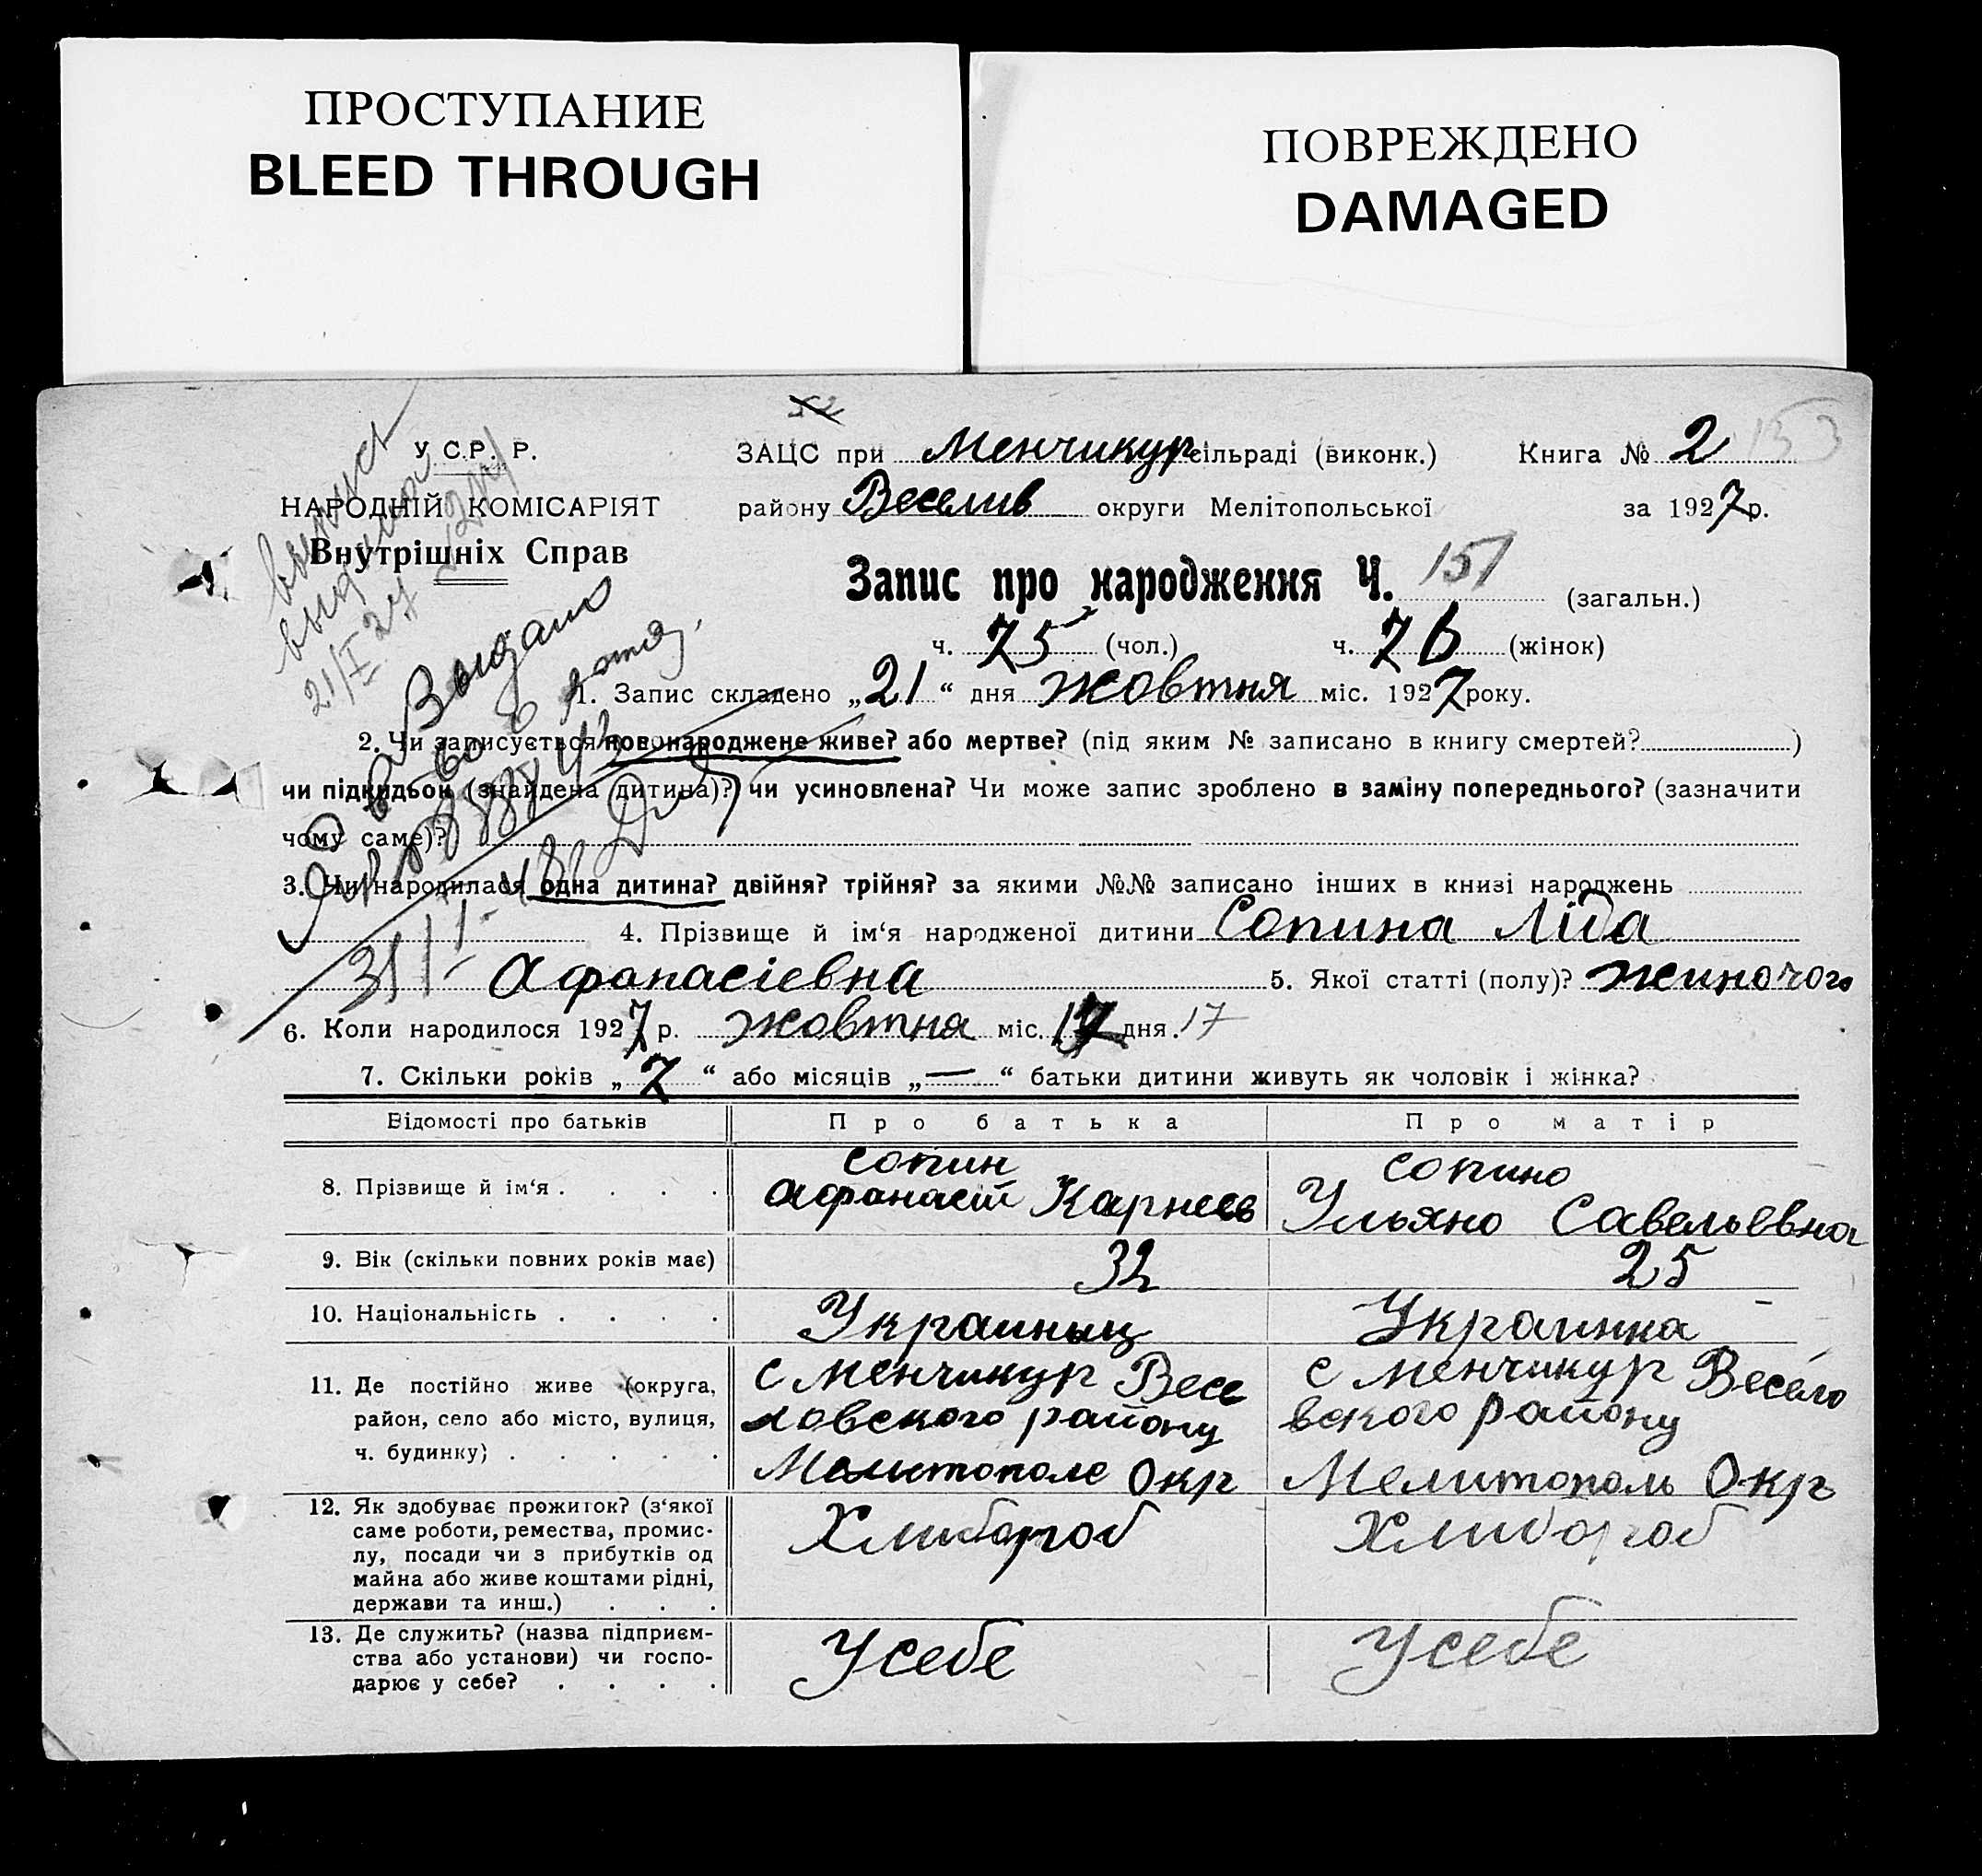 ПРОСТУПАНИЕ
BLEED THROUGH
ПОВРЕЖДЕНО
DAMAGED
У.С.Р. Р.
НАРОДНІЙ КОМІСАРІЯТ
Внутрішніх Справ
ЗАЦС при Менчикур сільраді (виконк.) Книга № 2 153
району Веселив округи Мелітопольської за 1927 р.
Запис про народження Ч. 151 (загальн.)
ч. 75 (чол.) ч. 76 (жінок)
выпуск
21/I 27
Выдано
1. Запис складено „21“ дня жовтня міс. 1927 року.
2. Чи записується новонароджене живе? або мертве? (під яким № записано в книгу смертей? )
чи підкидьок (знайдена дитина)? чи усиновлена? Чи може запис зроблено в заміну попереднього? (зазначити
чому саме)?
3. Чи народилася одна дитина? двійня? трійня? за якими №№ записано інших в книзі народжень
4. Прізвище й ім‘я народженої дитини Сопина Ліда
Афанасіевна 5. Якої статті (полу)? жиночого
6. Коли народилося 1927 р. жовтня міс. 17 дня. 17
7. Скільки років „7“ або місяців „—“ батьки дитини живуть як чоловік і жінка?
Відомості про батьків Про батька Про матір
8. Прізвище й ім‘я . . . . Сопин Афанасій Карнеев Сопино Ульяно Савельевна
9. Вік (скільки повних років має) 32 25
10. Національність . . . . Украиныц Украинка
11. Де постійно живе (округа, с Менчикур Весе с Менчикур Весело
район, село або місто, вулиця, ловского району вского району
ч. будинку) . . . . . Мелитополе Окр Мелитополь Окр
12. Як здобуває прожиток? (з‘якої Хлибороб Хлибороб
саме роботи, ремества, промис-
лу, посади чи з прибутків од
майна або живе коштами рідні,
держави та инш.) . . .
13. Де служить? (назва підприєм- У себе У себе
ства або установи) чи госпо-
дарює у себе? . . . .